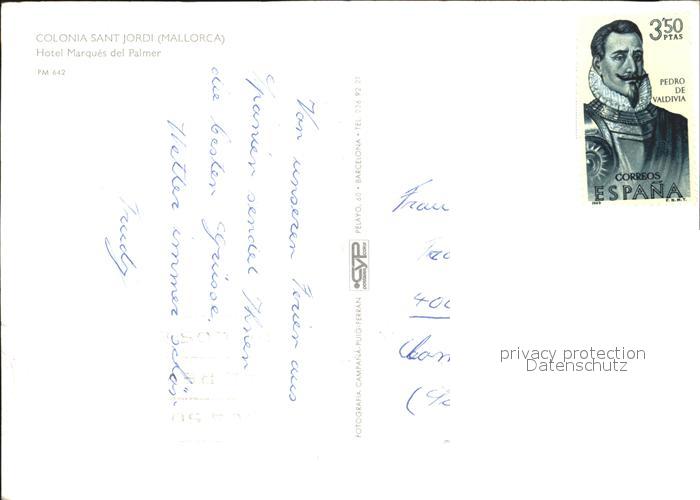 COLONIA SANT JORDI (MALLORCA)
Hotel Marqués del Palmer
PM 642
Von unseren Ferien aus
Spanien sendet Ihnen
die besten Grüsse.
Wetter immer schön.
Trudy
FOTOGRAFIA CAMPAÑÁ-PUIG-FERRAN
CYP
PELAYO, 60 • BARCELONA • TEL.
3'50
PTAS
PEDRO
DE
VALDIVIA
CORREOS
ESPAÑA
F.N.M.T.
Frau
400
privacy protection
Datenschutz